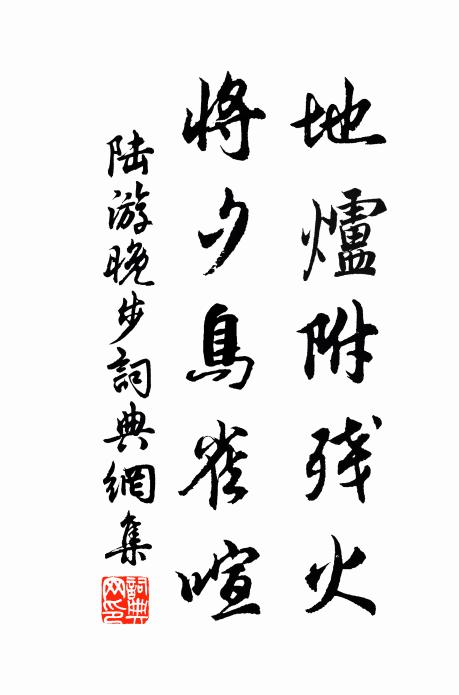 地爐附残火
將夕鳥雀喧
陆游晚步詞典網集
詞典网印